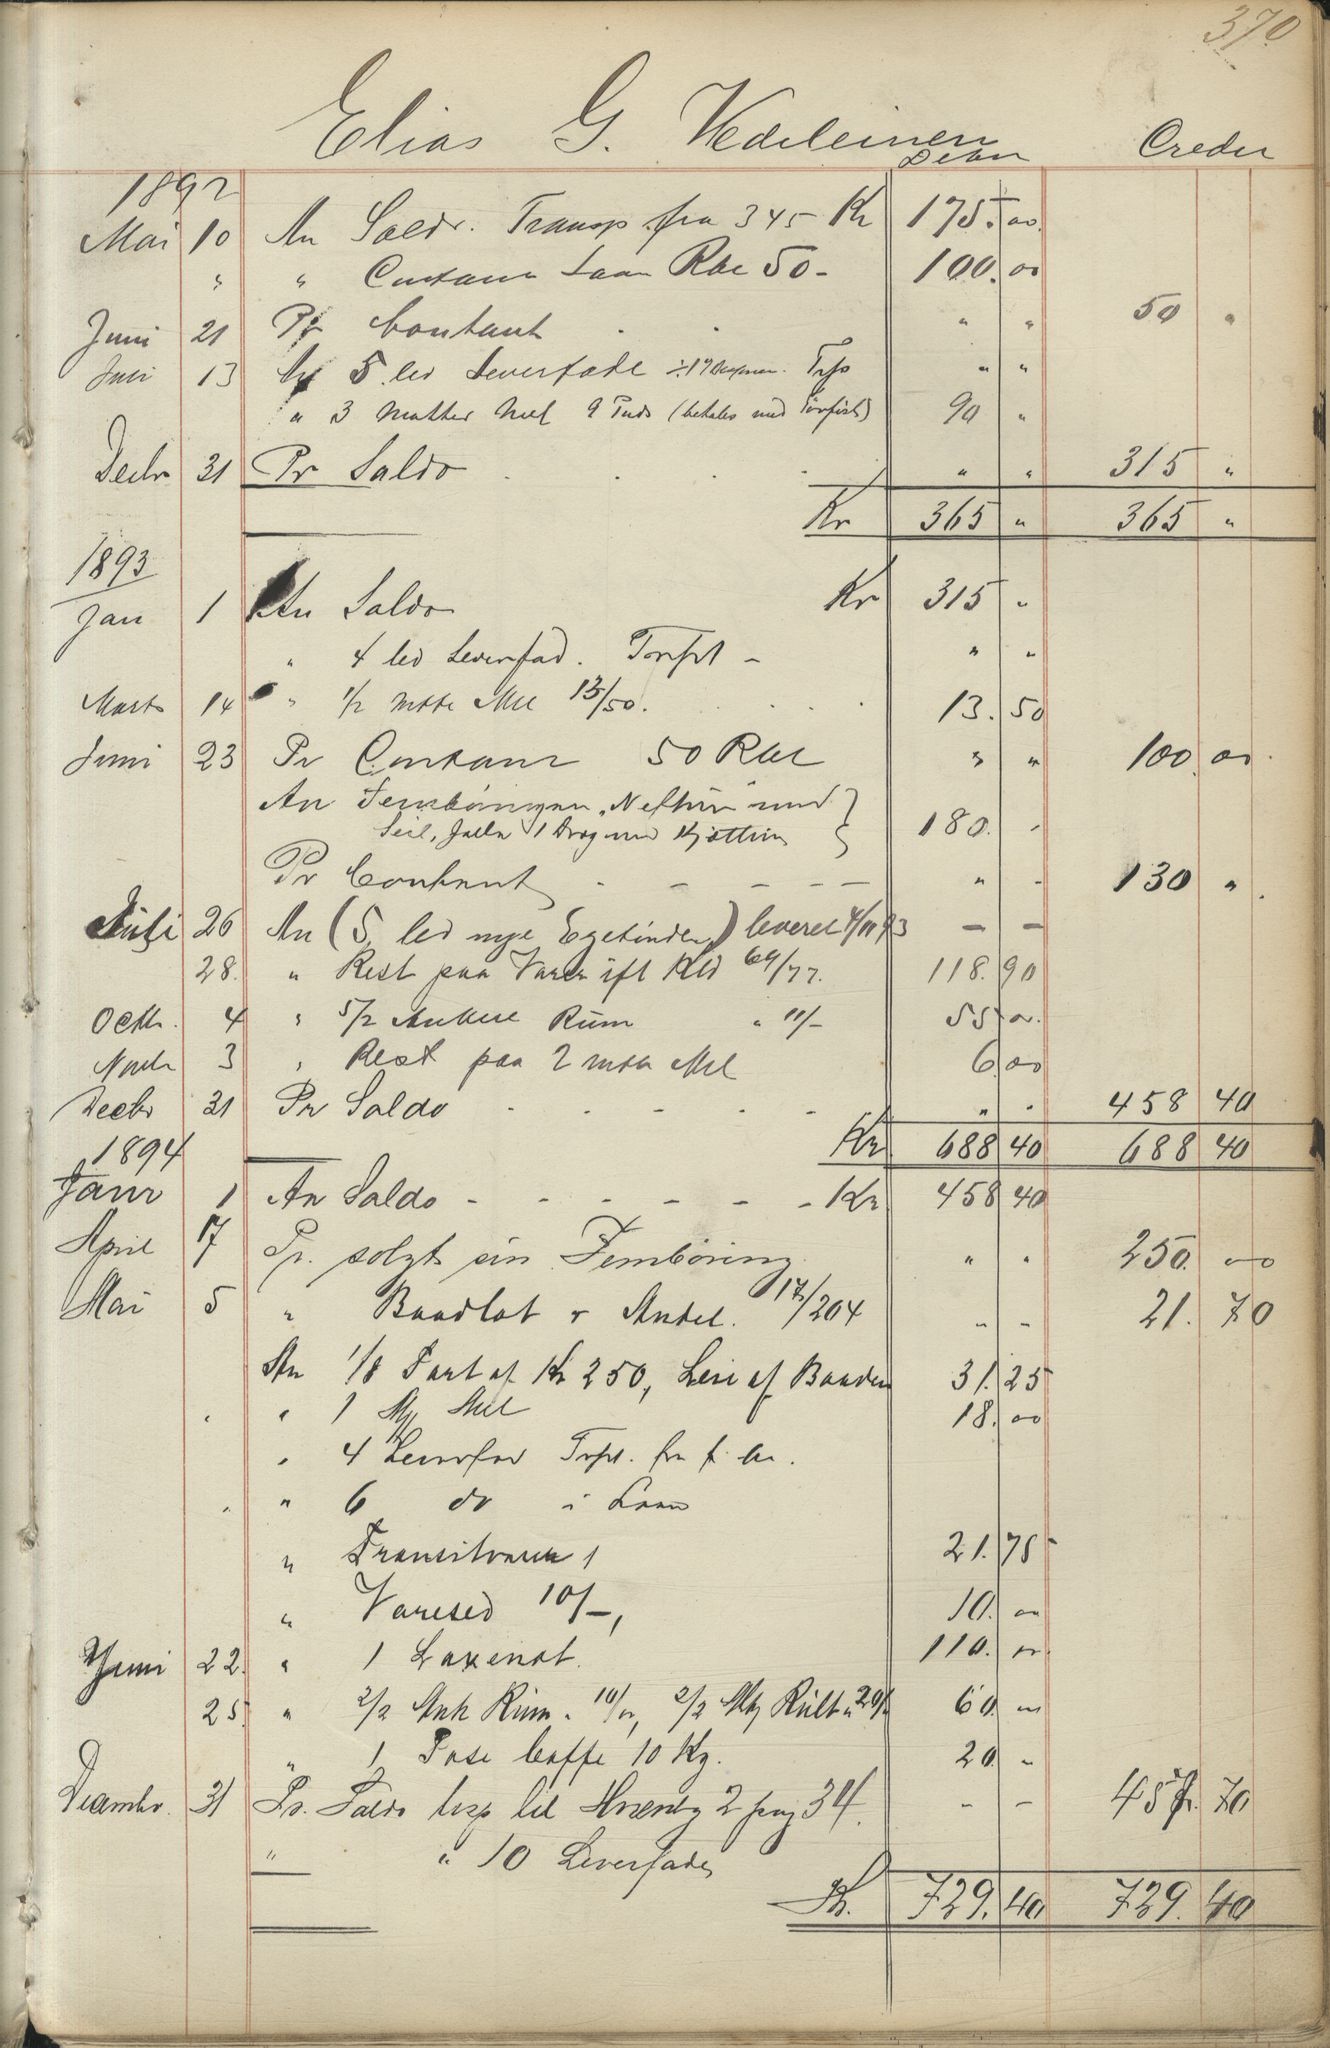 370
Elias G. Vedeleinen
Debet Credit
1892
Mai 10 An Saldo. Transp. fra 345 Kr 175. 00
" " Contant Laan Rbl 50 - 100. 00
Juni 21 Pr Contant . . " " 50 "
Juli 13 An 5 led Leverfade Trp " "
" 3 Matter Mel 9 Puds (betales med Törfisk) 90 "
Decbr 31 Pr Saldo . . . " " 315 "
Kr 365 " 365 "
1893
Jan 1 An Saldo Kr 315 "
" 4 led Leverfad. Tomfst - " "
Marts 14 " 1/2 Matte Mel 13/50. . . . . 13. 50
Juni 23 Pr Contant 50 Rbl " " 100. 00
An Fembøringen "Neftun" med }
Seil, 1 Drog med Kjætting } 180. -
Pr Contant - - - - - " - 130 "
Juli 26 An (5 led nye Egetönder) leveret 4/11 93 - -
28. " Rest paa Varer ift Kld 69/77. 118. 90
Octbr. 4 " 5/2 Ankere Rum " 11/- 55 00.
Novbr 3 " Rest paa 2 Matter Mel 6. 00
Decbr 31 Pr Saldo - - - - - " " 458 40
Kr 688 40 688 40
1894
Janr 1 An Saldo - - - - - - Kr 458 40
April 17 Pr. solgt sin Fembøring " " 250. 00
Mai 5 " Baadlot & Andel. 17/204 " " 21. 70
An 1/8 Part af Kr 250, Leie af Baaden 31. 25
" " 1 M/ Mel 18. 00
" 4 Leverfad Trpt. fra f. Aar.
" " 6 do i Laan
" Transitvarer 1 21. 75
" Varesed 10/-, 10. 00
Juni 22. " 1 Laxenot. 110. 00
25. " 2/2 Ank Rum " 10/00, 2/2 Mtg Rült " 20/- 60. 00
" 1 Pose Caffe 10 Kg. 20. -
Decembr. 31 Pr. Saldo trsp til Hovedbg 2 pag 34. - - 457. 70
" " 10 Leverfade,
Kr. 729. 40 729. 40